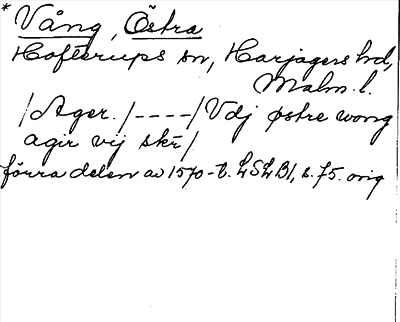 * Vång, Östra
Hofterups sn, Harjagers hd,
Malm. l.
/Ager. /----/ Vdj østre wong
agir vij skr/
förra delen av 1570-t. LSLB1, s. 75. orig